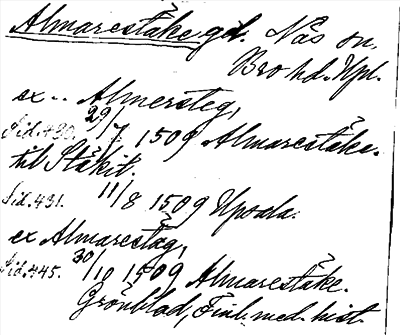 Almarestäke gd. Näs sn.
Bro hd. Upl.
ex.. Almersteg,
Sid.430. 29/7 1509 Almarestäke.
til Stäkit.
Sid.431. 11/8 1509 Upsala.
ex Almarestäg,
Sid.445. 30/10 1509 Almarestäke.
Grönblad, Finl. med. hist.